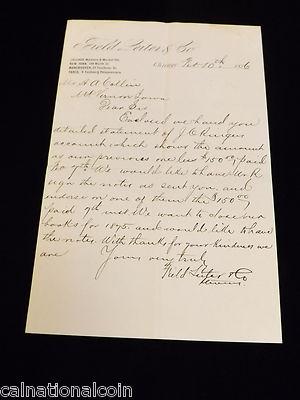 Field, Leiter & Co
CHICAGO, Madison & Market Sts.
NEW YORK,
MANCHESTER,
PARIS,
Chicago Feb 10th 1876
Mr. A A Collin
Mt Vernon Iowa
Dear Sir
Enclosed we hand you
detailed statement of J. C.
account which shows the amount
as our previous one less $150 00 paid
7th We would like to have
sign the notes as sent you, and
endorse on one of them the $150 00
paid 7th inst. We want to close our
books for 1875 and would like to have
the notes. With thanks for your kindness we
are
Yours very truly
Field Leiter & Co
calnationalcoin
calnationalcoin.com